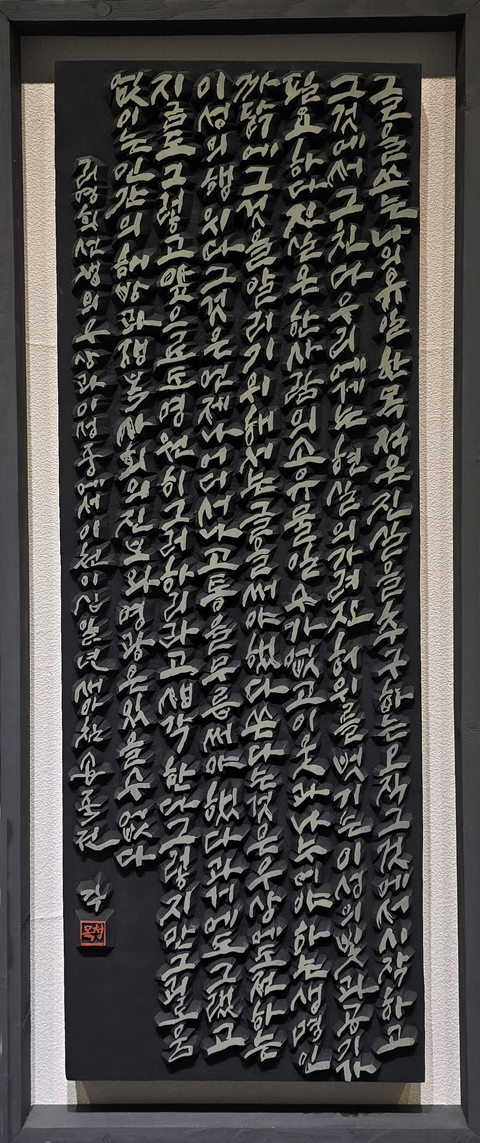 글을쓰는나의유일한목적은진실을추구하는오직그것에서시작하고
그것에서그친다우리에게는현실의가려진허위를벗기는이성의빛과공기가
필요하다진실은한사람의소유물일수가없고이웃과나누어야하는생명인
까닭에그것을알리기위해서는글을써야했다쓴다는것은우상에도전하는
이성의행위다그것은언제나어디서나고통을무릅써야했다과거에도그랬고
지금도그렇고앞으로도영원히그러하리라고생각한다그렇지만그괴로움
없이는인간의해방과행복사회의진보와영광은있을수없다
리영희선생의우상과이성중에서이천이십일년새아침
각